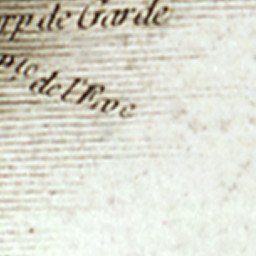 pp de Garde
nte de l'Eve